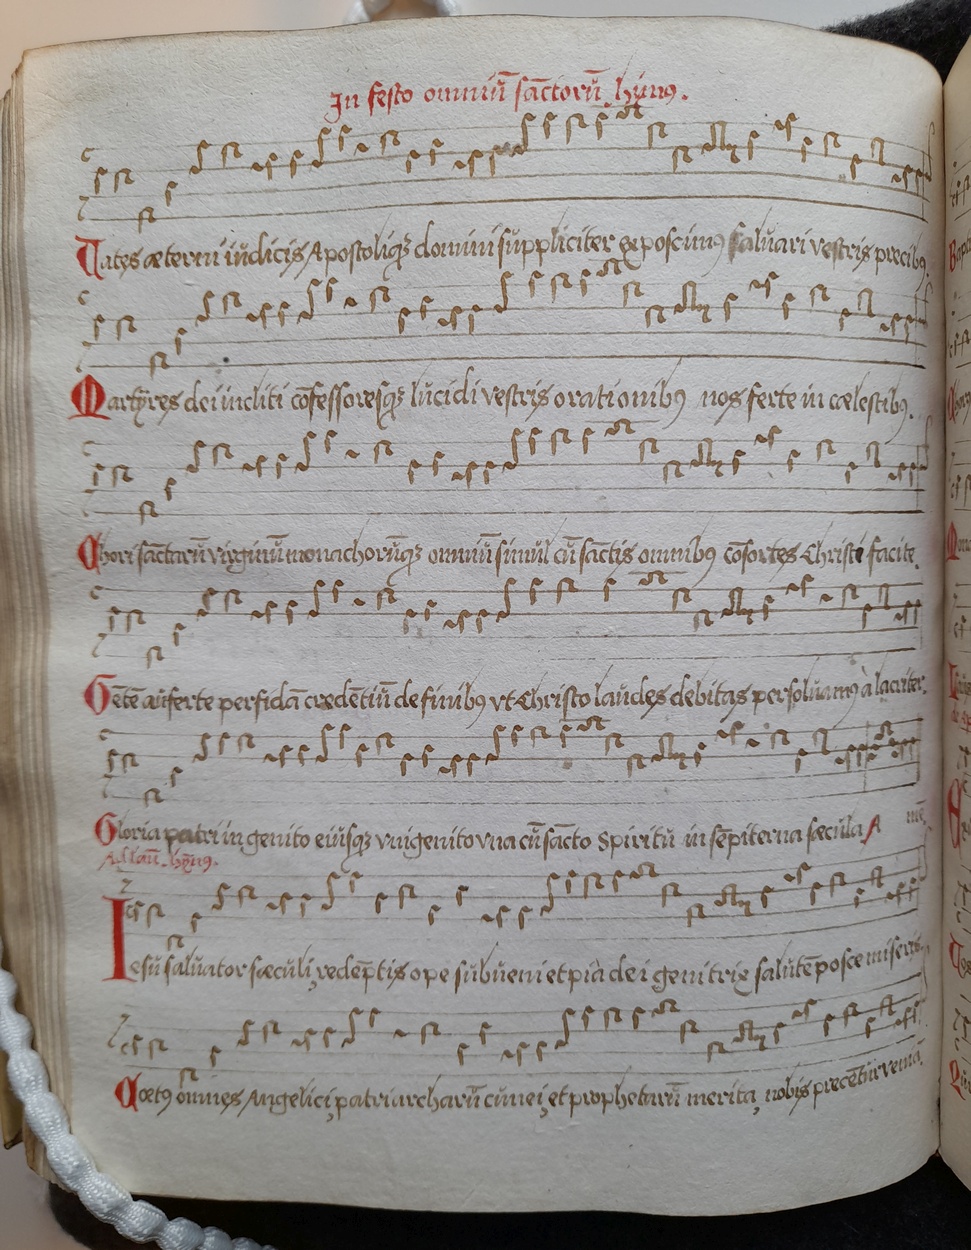 In festo omniū sāctorū hymꝰ.
Vates æterni iudicis Apostoliqꝫ domini suppliciter exposcimꝰ saluari vestris precibꝰ.
Martyres dei incliti cōfessoresqꝫ lucidi vestris orationibꝰ nos ferte in cælestibꝰ.
Chori sāctarū virginū monachorūqꝫ omniū simul cū sāctis omnibꝰ cōsortes Christi facite.
Gētē auferte perfidā credētiū de finibꝰ vt Christo laudes debitas persoluamꝰ alacriter.
Gloria patri ingenito eiusqꝫ vnigenito vna cū sācto Spiritu in sēpiterna sæcula A mē.
Ad lau. hymꝰ.
Iesu saluator sæculi, redēptis ope subueni et pia dei genitrix salutē posce miseris
Coetꝰ omnes Angelici, patriarcharū cunei, et prophetarū merita, nobis precētur veniā.